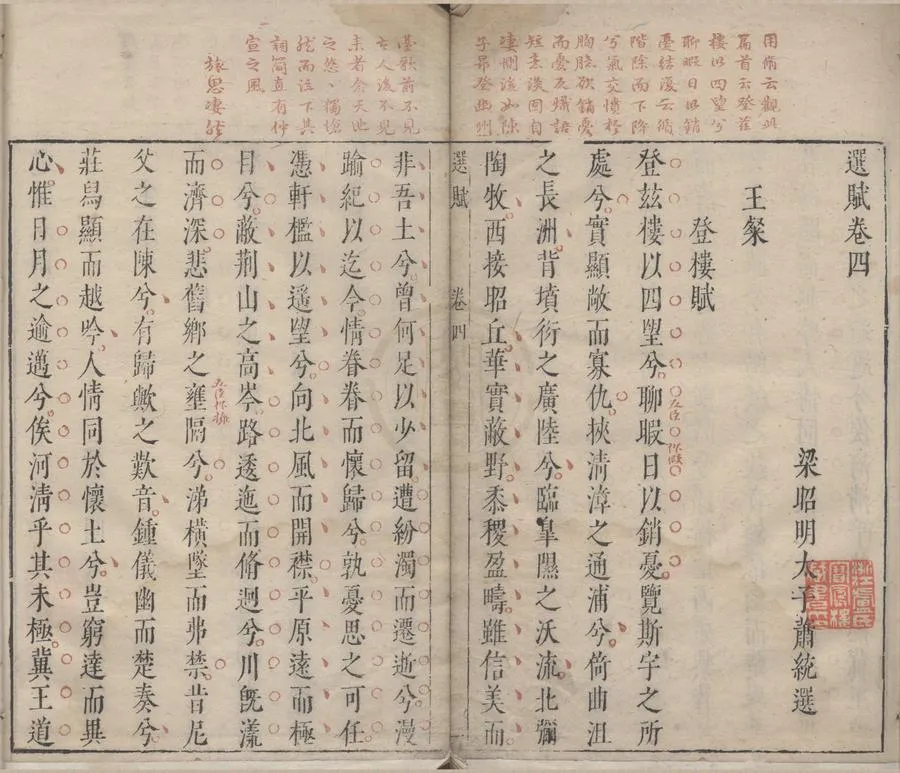 用脩云觀此
篇首云登茲
樓以四望兮
聊暇日以銷
憂結處云循
階除而下降
兮氣交憤於
胸臆欲銷憂
而憂反熾語
短意自
悽惻後如陳
子昂登幽州
臺歌前不見
古人後不見
來者念天地
之悠悠獨愴
然而下其
詞簡直有仲
宣之風
旅思悽然
選賦卷四
梁昭明太子蕭統選
王粲
登樓賦
登茲樓以四望兮聊暇日以銷憂覽斯宇之所
五臣作
處兮實顯敞而寡仇挾清漳之通浦兮倚曲沮
之長洲背墳衍之廣陸兮臨皐隰之沃流北彌
陶牧西接昭丘華實蔽野黍稷盈疇雖信美而
選賦 卷四 一
非吾土兮曾何足以少留遭紛濁而遷逝兮漫
踰紀以迄今情眷眷而懷歸兮孰憂思之可任
憑軒檻以遥望兮向北風而開襟平原遠而極
目兮蔽荆山之高岑路逶迤而脩迥兮川旣漾
而濟深悲舊鄉之壅隔兮涕橫墜而弗禁昔尼
五臣作擁
父之在陳兮有歸歟之歎音鍾儀幽而楚奏兮
莊舄顯而越吟人情同於懷土兮豈窮達而異
心惟日月之逾邁兮俟河清乎其未極冀王道